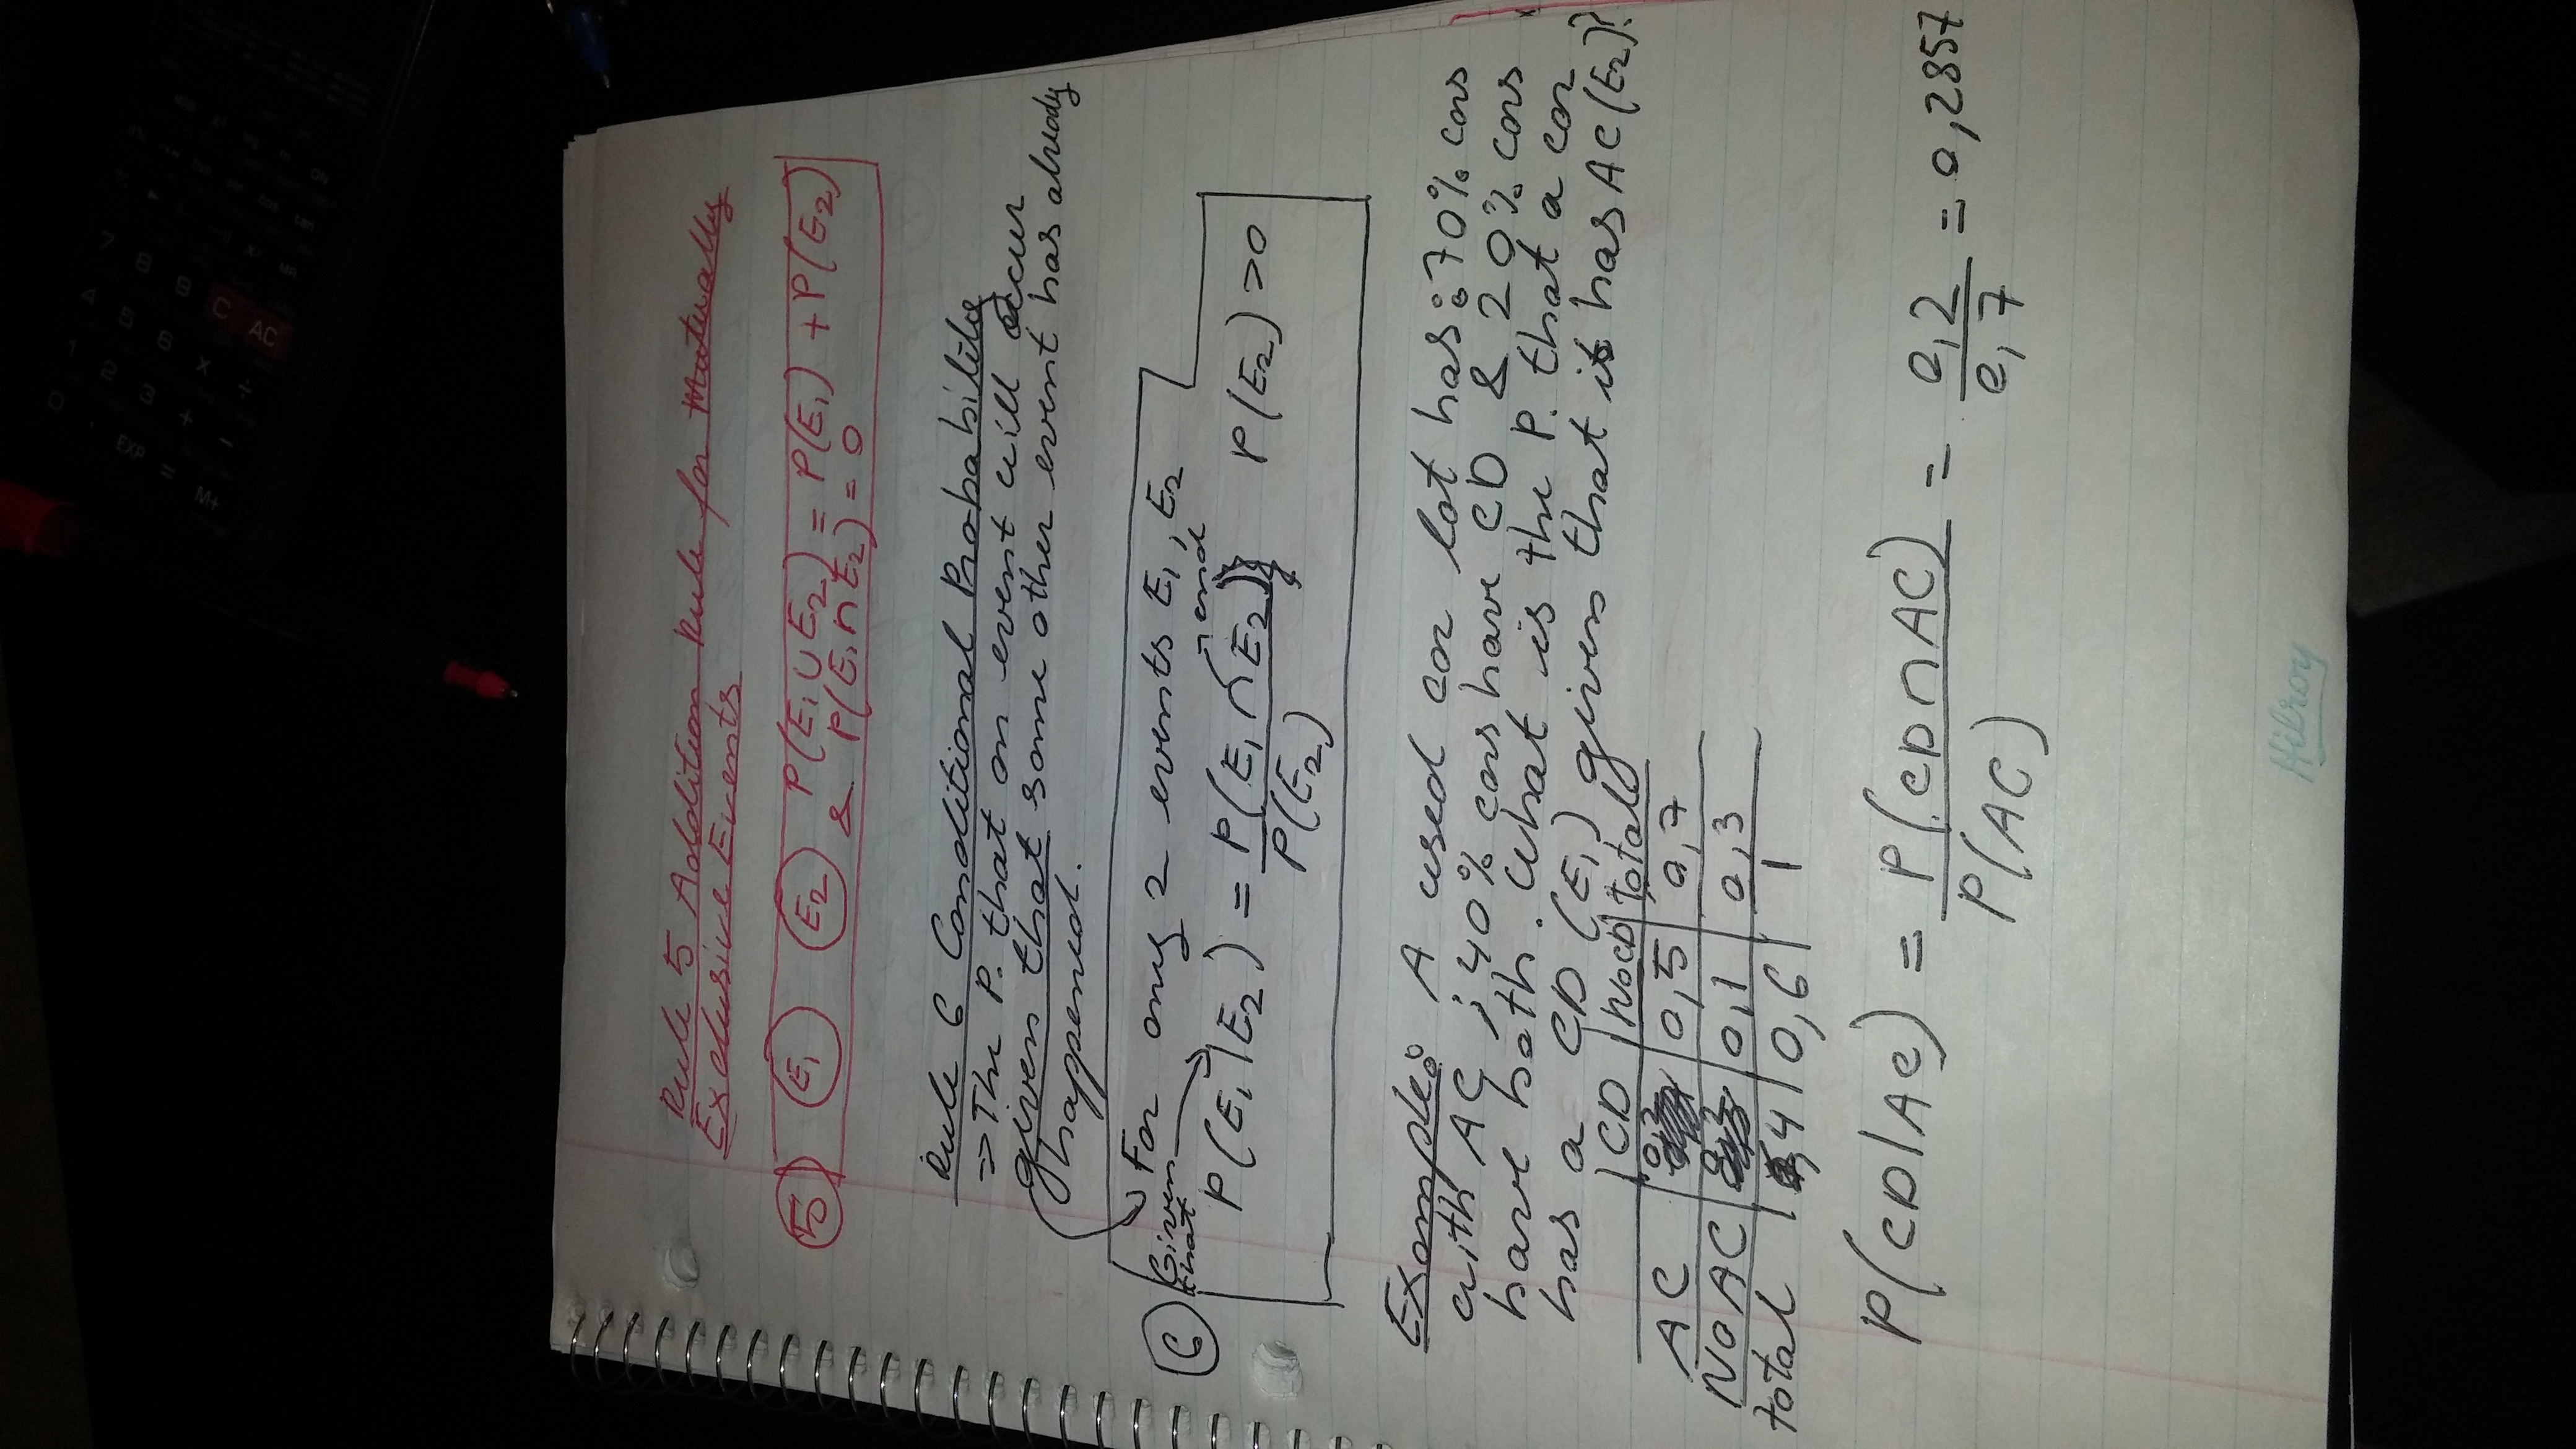 Rule 5 Addition Rule for Mutually
Exclusive Events
5 E1 E2 P(E1 ∪ E2) = P(E1) + P(E2)
& P(E1 ∩ E2) = 0
Rule 6 Conditional Probability
⇒ The P. that an event will occur
given that some other event has already
happened.
6 Given that
For any 2 events E1, E2
and
P(E1|E2) = P(E1 ∩ E2) / P(E2) P(E2) > 0
Example: A used car lot has: 70% cars
with AC ; 40% cars have CD & 20% cars
have both. What is the P. that a car
has a CD (E1) given that it has AC (E2)?
CD | NoCD | total
AC | 0,2 | 0,5 | 0,7
No AC | 0,2 | 0,1 | 0,3
total | ,4 | 0,6 | 1
P(CD|AC) = P(CD ∩ AC) / P(AC) = 0,2 / 0,7 = 0,2857
Hilroy
7 8 9 C AC
4 5 6 × ÷
1 2 3 + −
0 . EXP = M+